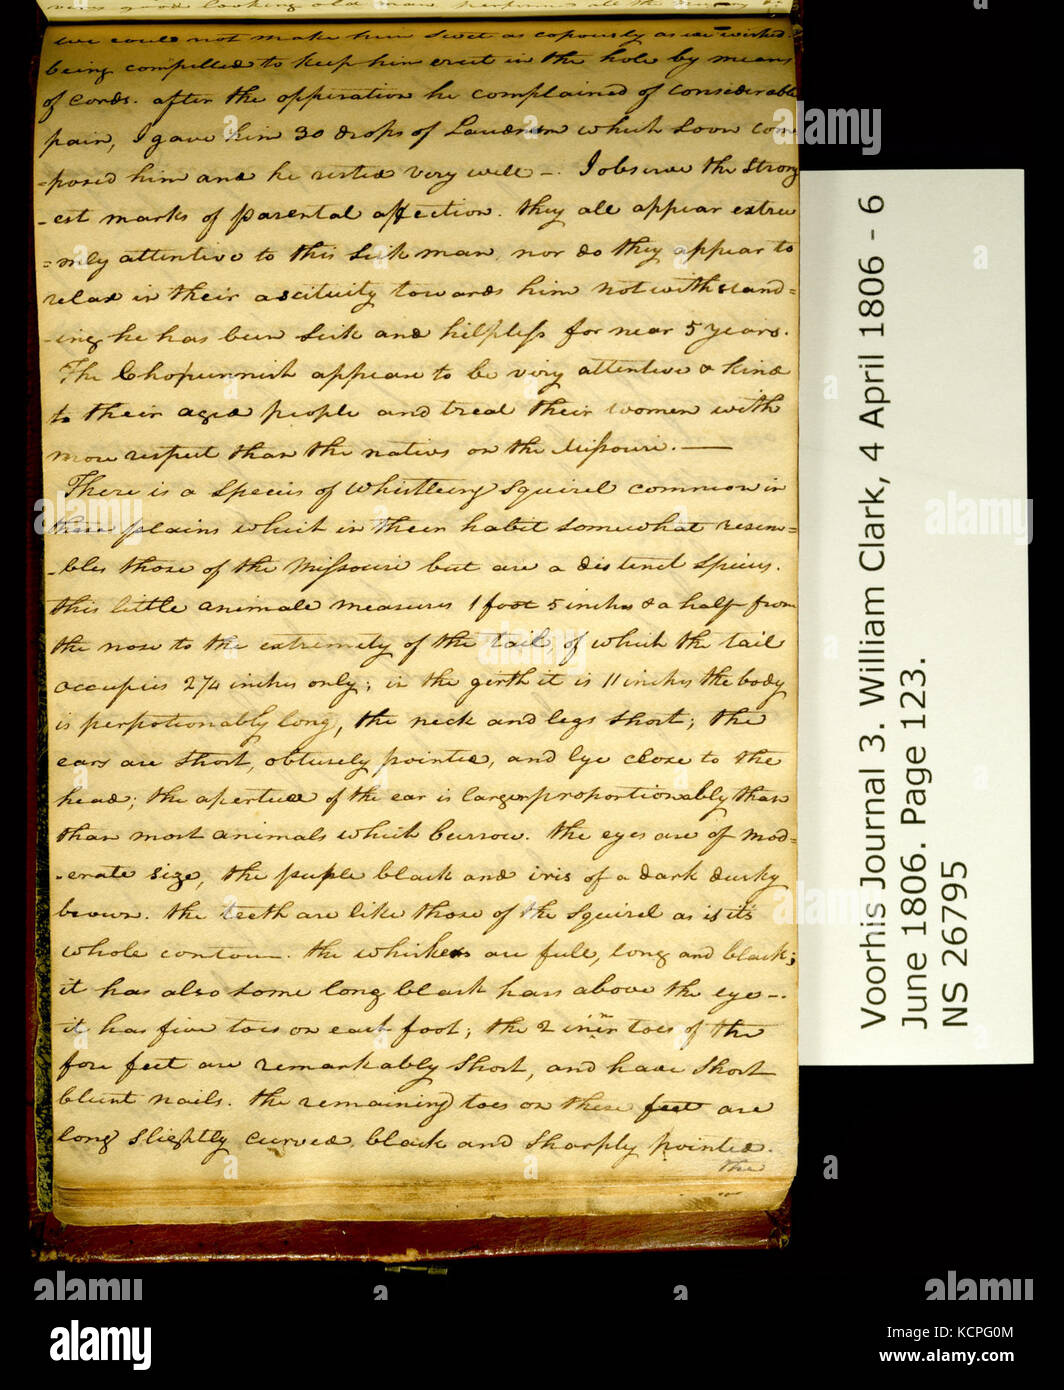 we could not make him Swet as copously as we wished
being compelled to keep him erect in the hole by means
of Cords. after the opperation he complained of Considerable
pain, I gave him 30 drops of Laudnom which Soon com
=posed him and he rested very well –. I observe the Strong
-est marks of parental affection. they all appear extreem
=mly attentive to this Sick man, nor do they appear to
relax in their ascituity towards him notwithstand=
-ing he has been Sick and helpless for near 5 years.
The Chopunnish appear to be very attentive & kind
to their aged people and treat their women with
more respect than the nativs on the Missouri. —
There is a Species of Whistleing Squirel common in
these plains which in their habit Somewhat resem=
-bles those of the Missouri but are a distinct Species.
this little animale measures 1 foot 5 inches & a half from
the nose to the extremity of the tail, of which the tail
occupies 2 1/4 inches only; in the girth it is 11 inches the body
is perpotionably long, the neck and legs short; the
ears are Short, obtusely pointed, and lye close to the
head; the aperture of the ear is larger proportionably than
than most animals which burrow. the eyes are of mod=
-erate size, the puple black and iris of a dark dusky
brown. the teeth are like those of the Squirel as is it's
whole contour. the whiskers are full, long and black;
it has also Some long black hars above the eye –.
it has five toes on each foot; the 2 inner toes of the
fore feet are remarkably Short, and have Short
blunt nails. the remaining toes on these feet are
long Slightly curved, black and Sharply pointed.
the
Voorhis Journal 3. William Clark, 4 April 1806 - 6
June 1806. Page 123.
NS 26795
alamy
Image ID: KCPG0M
www.alamy.com